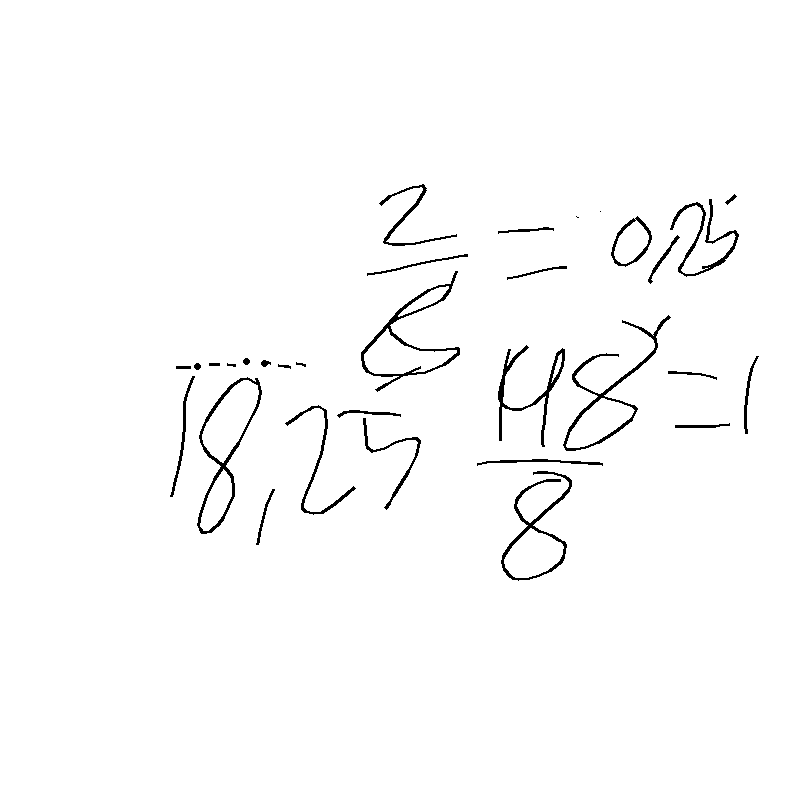 2/8 = 0,25
18,25
148/8 = 1